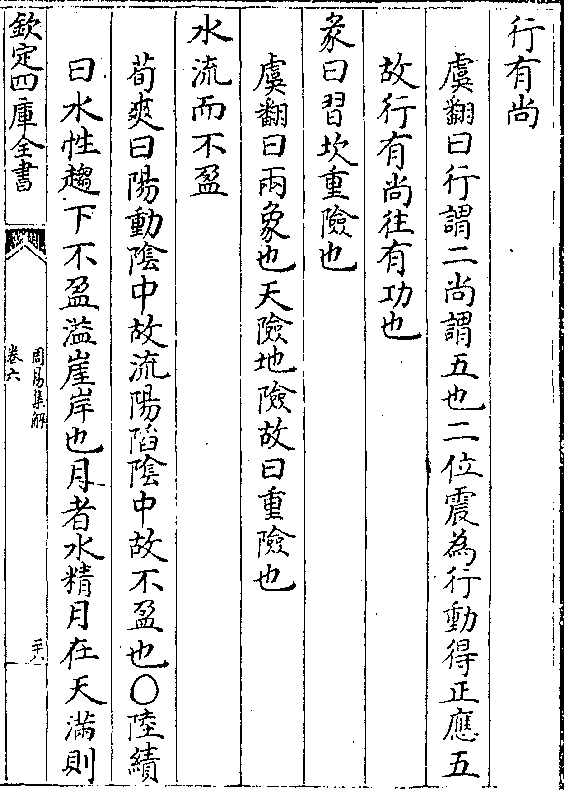 行有尚
虞翻曰行謂二尚謂五也二位震為行動得正應五
故行有尚往有功也
彖曰習坎重險也
虞翻曰兩象也天險地險故曰重險也
水流而不盈
荀爽曰陽動陰中故流陽陷陰中故不盈也〇陸績
曰水性趨下不盈溢崖岸也月者水精月在天滿則
欽定四庫全書
周易集解
卷六